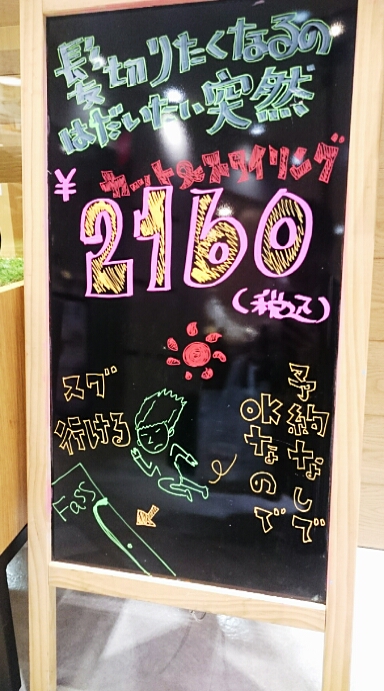 髪切りたくなるの
はだいたい突然
カット&スタイリング
¥2160
(税込)
予約なしで
OKなので
スグ
行ける
FaSS